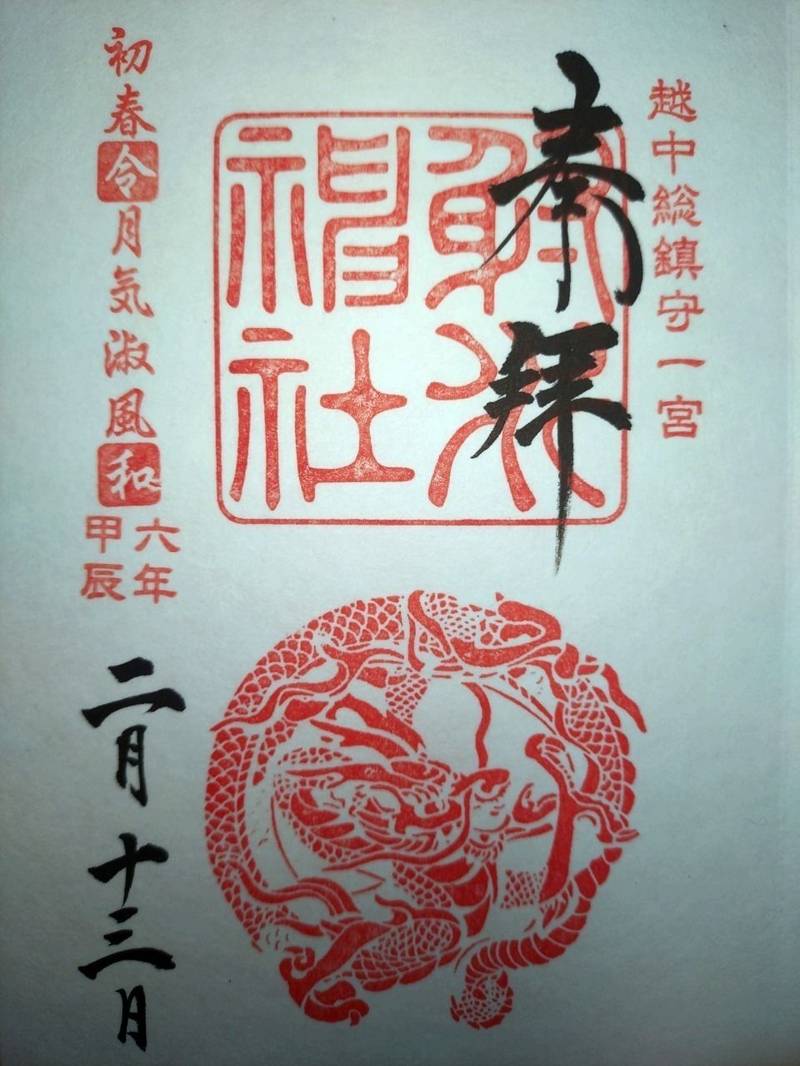 越中総鎮守一宮
奉拝
射水
神社
初春令月気淑風和
六年
甲辰
二月十三日